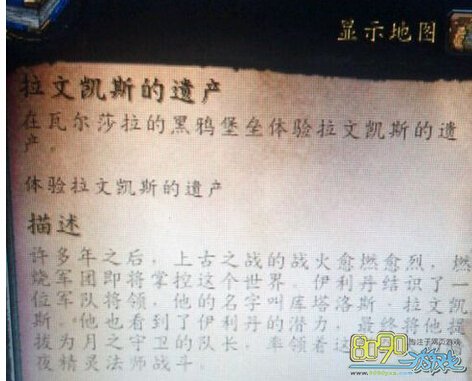 显示地图
拉文凯斯的遗产
在瓦尔莎拉的黑鸦堡垒体验拉文凯斯的遗
产。
体验拉文凯斯的遗产
描述
许多年之后，上古之战的战火愈燃愈烈，燃
烧军团即将掌控这个世界。伊利丹结识了一
位军队将领，他的名字叫库塔洛斯·拉文凯
斯。他也看到了伊利丹的潜力，最终将他提
拔为月之守卫的队长，率领着这
夜精灵法师战斗。
8090
专注于网页游戏
游戏
www.8090yxs.com